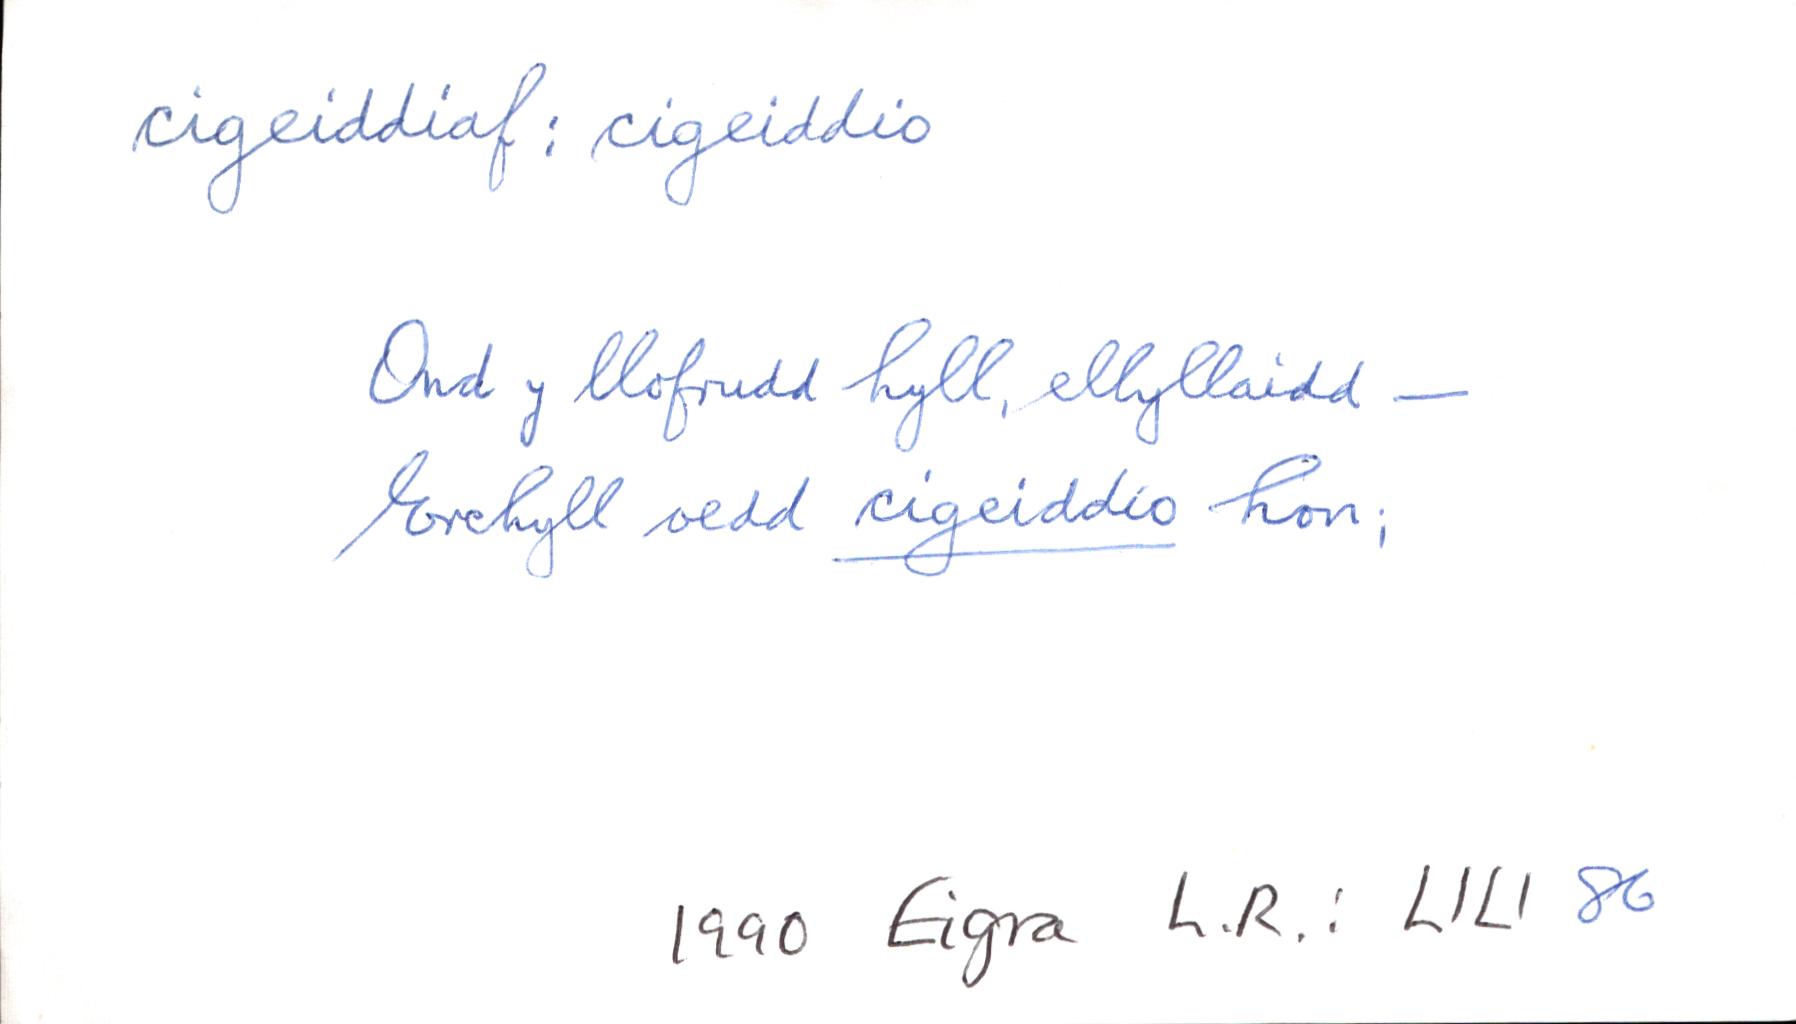 cigeiddiaf: cigeiddio
Ond y llofrudd hyll, ellyllaidd —
Erchyll oedd cigeiddio hon;
1990 Eigra L.R.: LILI 86